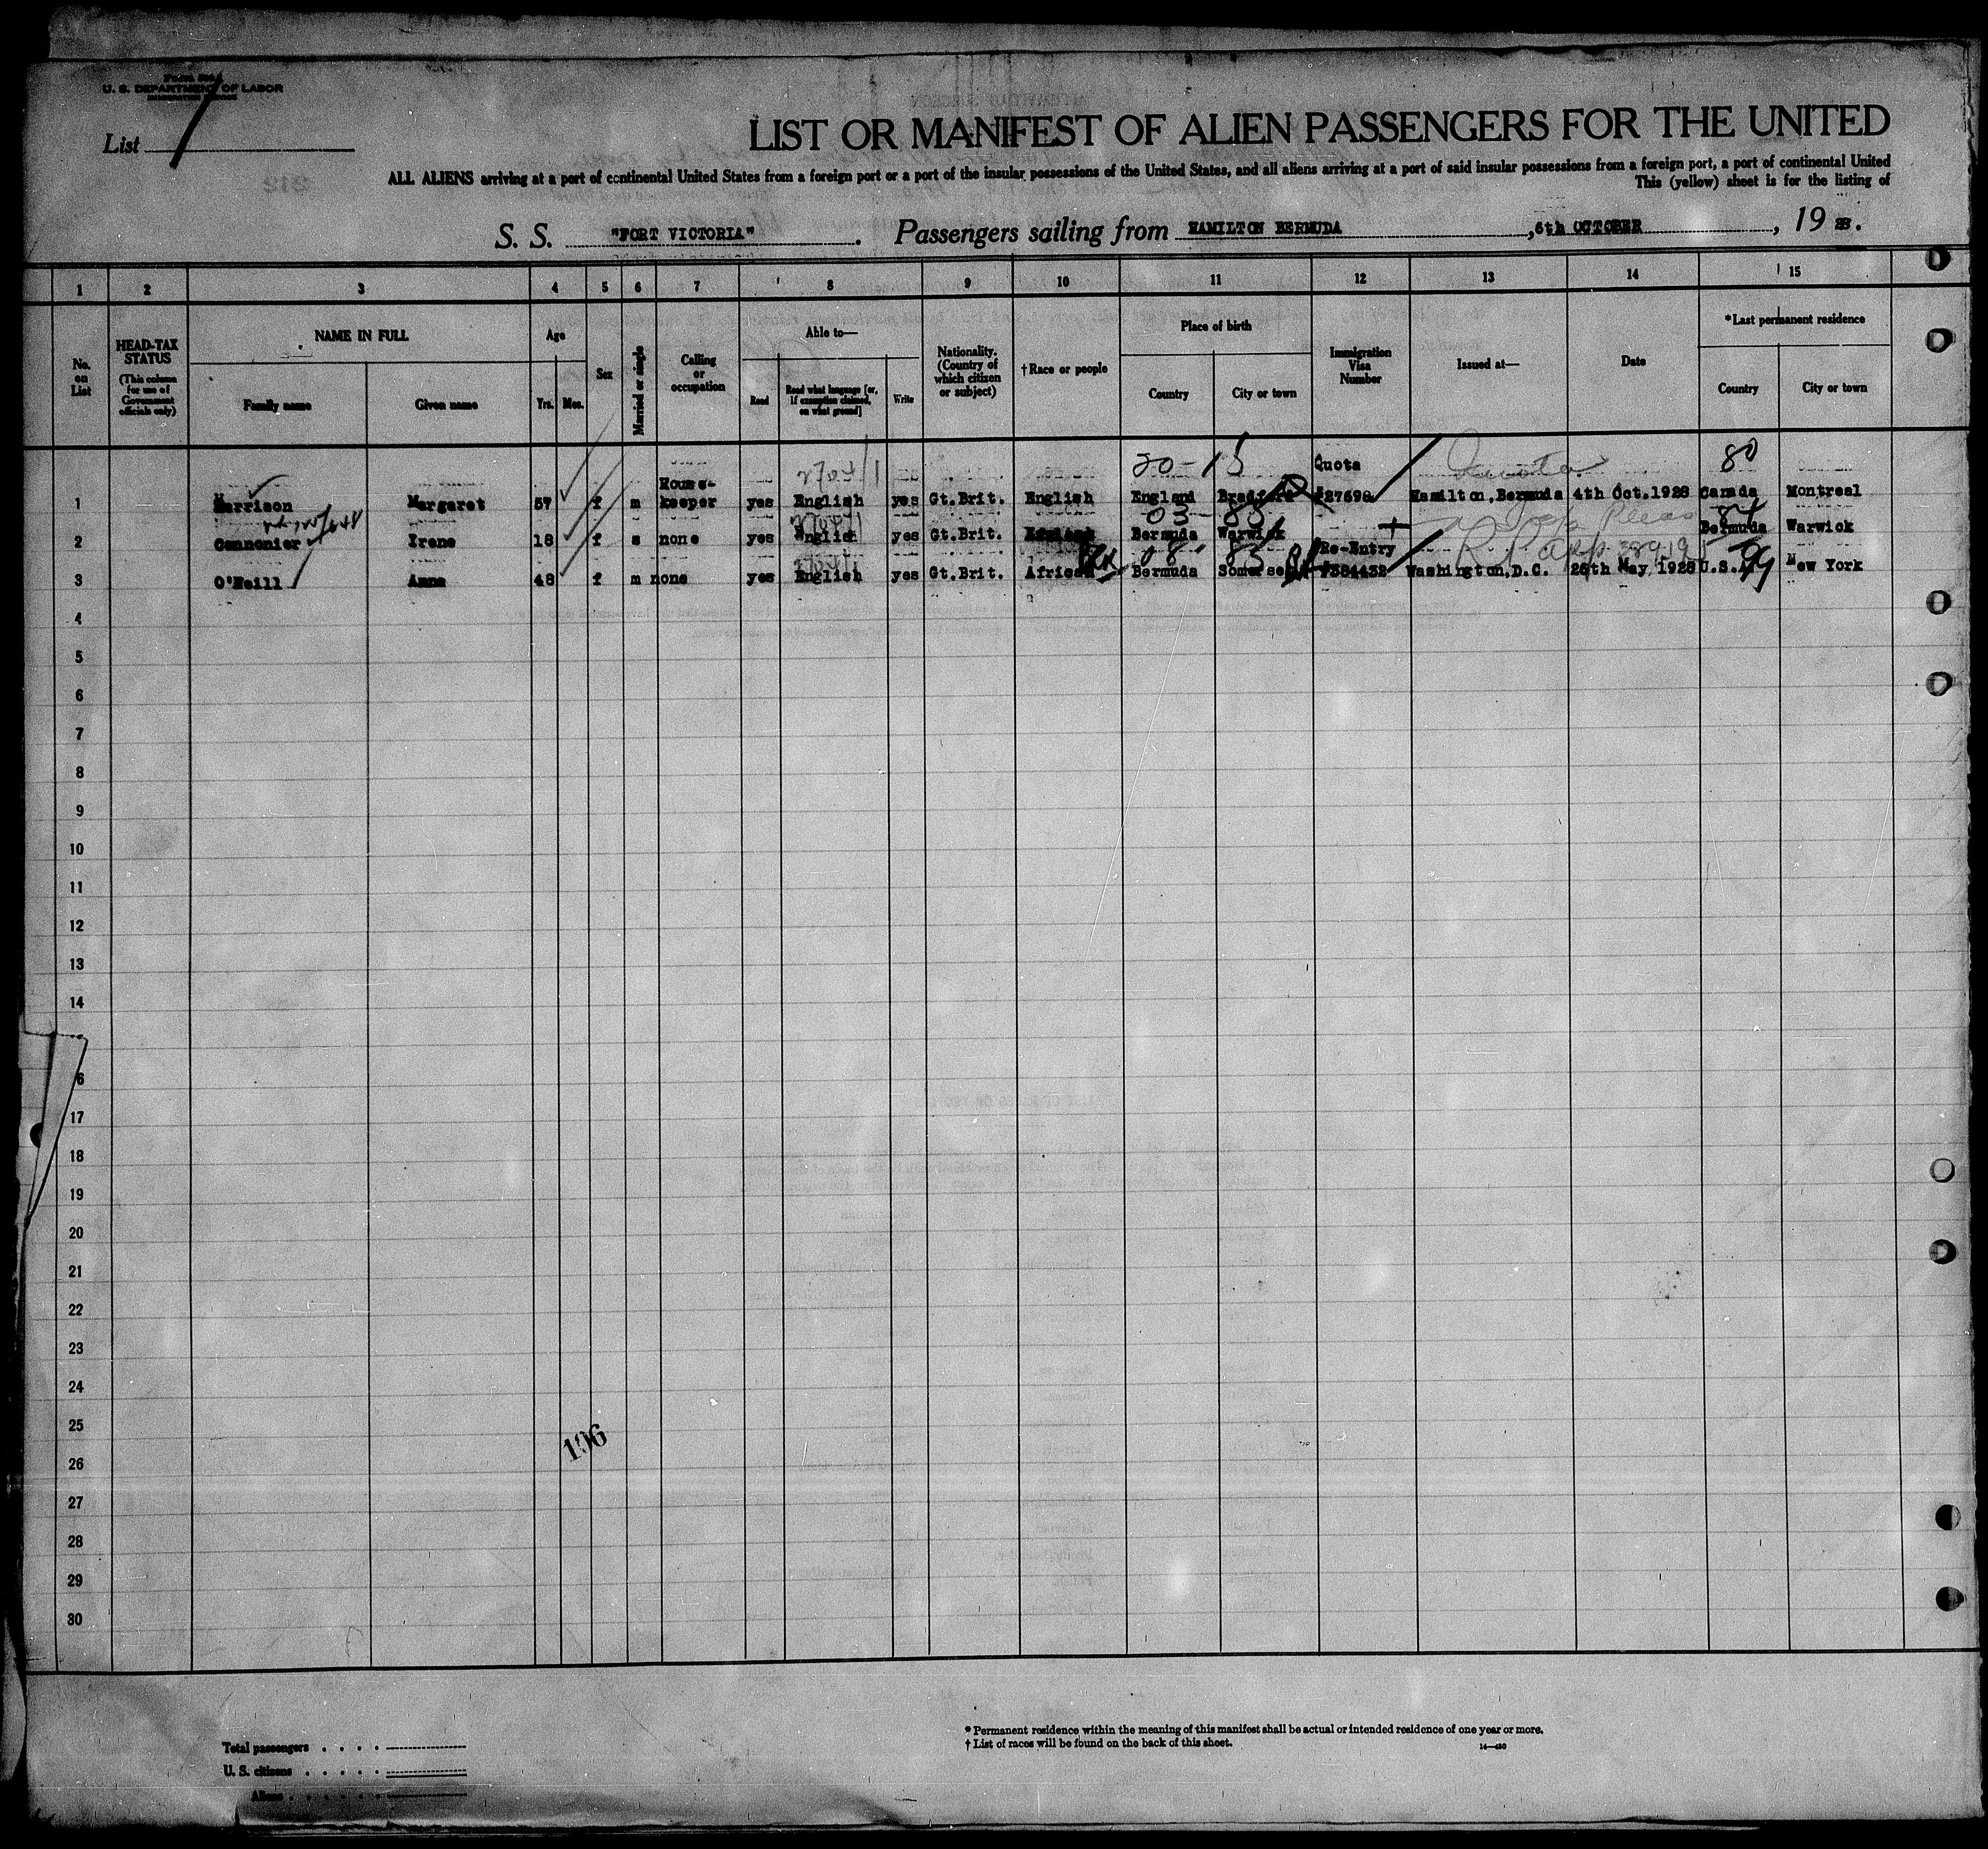 U. S. DEPARTMENT OF LABOR
List
LIST OR MANIFEST OF ALIEN PASSENGERS FOR THE UNITED
ALL ALIENS arriving at a port of continental United States from a foreign port or a part of the insular possessions of the United States, and all aliens arriving at a port of said insular possessions from a foreign port, a port of continental United
This (yellow) sheet is for the listing of
S. S. "FORT VICTORIA". Passengers sailing from HAMILTON BERMUDA, 6th OCTOBER, 19 28.
1 2 3 4 5 6 7 8 9 10 11 12 13 14 15
No. on List
HEAD-TAX STATUS (This column for use of Government officials only)
NAME IN FULL
Family name Given name
Age
Yrs. Mos.
Sex
Married or single
Calling or occupation
Able to—
Read Read what language [or, if exemption claimed, on what ground] Write
Nationality. (Country of which citizen or subject)
†Race or people
Place of birth
Country City or town
Immigration Visa Number
Issued at—
Date
*Last permanent residence
Country City or town
20-15 Quota Quota 80
1 Harrison Margaret 57 f m House-keeper yes English yes Gt.Brit. English England Bradford #27698 Hamilton, Bermuda 4th Oct. 1928 Canada Montreal
2 Cannonier Irene 18 f s none yes English yes Gt.Brit. Bermuda Warwick Bermuda Warwick
Re-Entry
3 O'Neill Anna 48 f m none yes English yes Gt.Brit. African Bermuda Somerset #384432 Washington, D.C. 26th May, 1928 U.S. New York
4
5
6
7
8
9
10
11
12
13
14
6
17
18
19
20
21
22
23
24
25
106
26
27
28
29
30
* Permanent residence within the meaning of this manifest shall be actual or intended residence of one year or more.
† List of races will be found on the back of this sheet.
Total passengers
U. S. citizens
Aliens